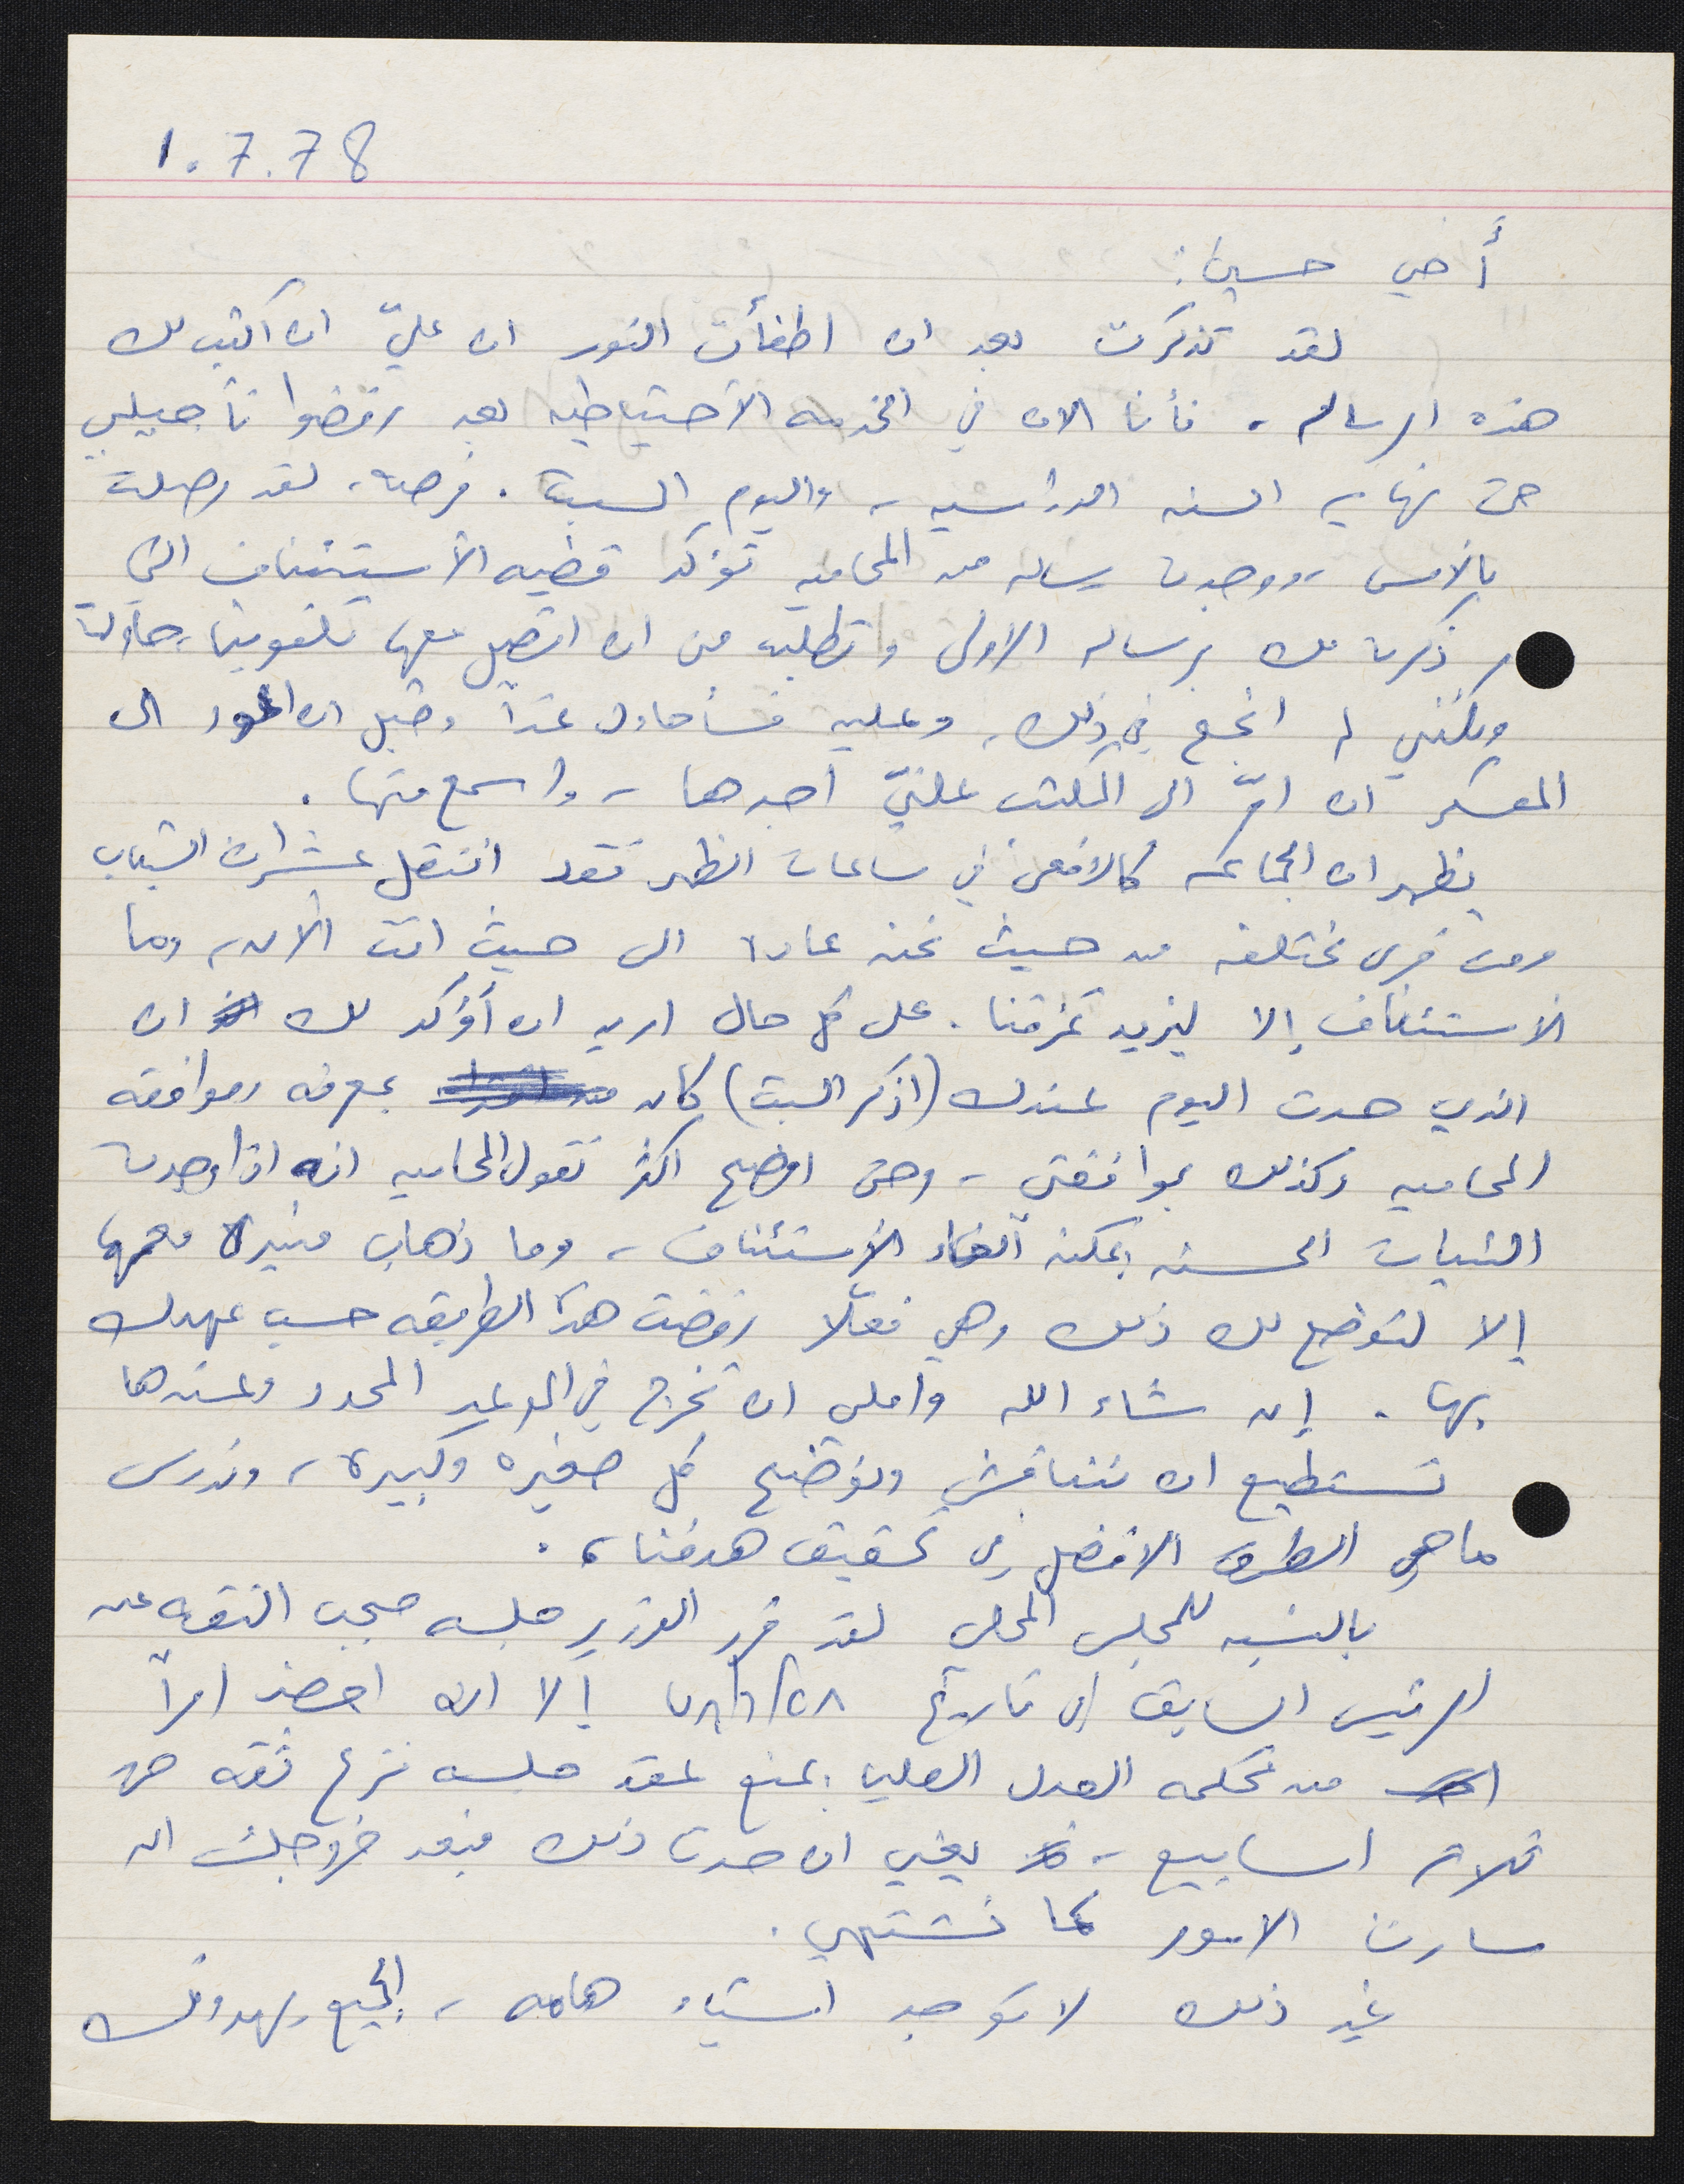 1.7.78
أخي حسين:
لقد تذكرت بعد ان اطفأت النور ان عليّ ان اكتب لك
هذه الرساله. فأنا الان في الخدمه الاحتياطيه بعد رفضوا تأجيلي
حتى نهايه السنه الدراسيه، واليوم السبت. فرصه. لقد وصلت
بالامس، ووجدت رساله من المحاميه تؤكد قضيه الاستئناف التي
ذكرت لك برساله الاولى وتطلب من ان اتصل معها تلفونيا، حاولت
ولكنني لم انجح في ذلك، وعليه فسأحاول غداً وقبل ان اعود الى
المعسكر ان امرّ الى المكتب علنيّ اجدها، واسمع منها.
يظهر ان الجماعه كالافعى في ساعات الظهر فقد انتقل عشرات الشباب
ومن قرى مختلفه من حيث نحن عاده الى حيث انت الان، وما
الاستئناف إلا ليزيد تمزقنا. على كل حال اريد ان أؤكد لك ان
الذي حدث اليوم عندك (اذكر السبت) كان بمعرفه وموافقه
المحاميه وكذلك بموافقتي، وحتى اوضح اكثر تقول المحاميه انه اذا وجدت
النيات الحسنه يمكنه الغاء الاستئناف، وما ذهاب منيره معها
إلا لتوضح لك ذلك وهي فعلاً رفضت هذه الطريقه حسب عهدك
بها. إن شاء الله واملي ان تخرج في الموعد المحدد وعندها
نستطيع ان نتناقش ونوضح كل صغيره وكبيره، وندرس
ماهي الطرق الافضل في تحقيق هدفنا،.
بالنسبه للمجلس المحلي لقد قرر الوزير جلسه حجب الثقه عن
الرئيس السابق الى تاريخ ٧٨/٦/٢٨ إلا انه احضر امراً
من محكمه العدل العليا بمنع عقد جلسه نزع ثقه حتى
ثلاثه اسابيع، يعني ان حدث ذلك فبعد خروجك ان
سارت الامور كما نشتهي.
غير ذلك لا يوجد اشياء هامه، الجميع يهدونك